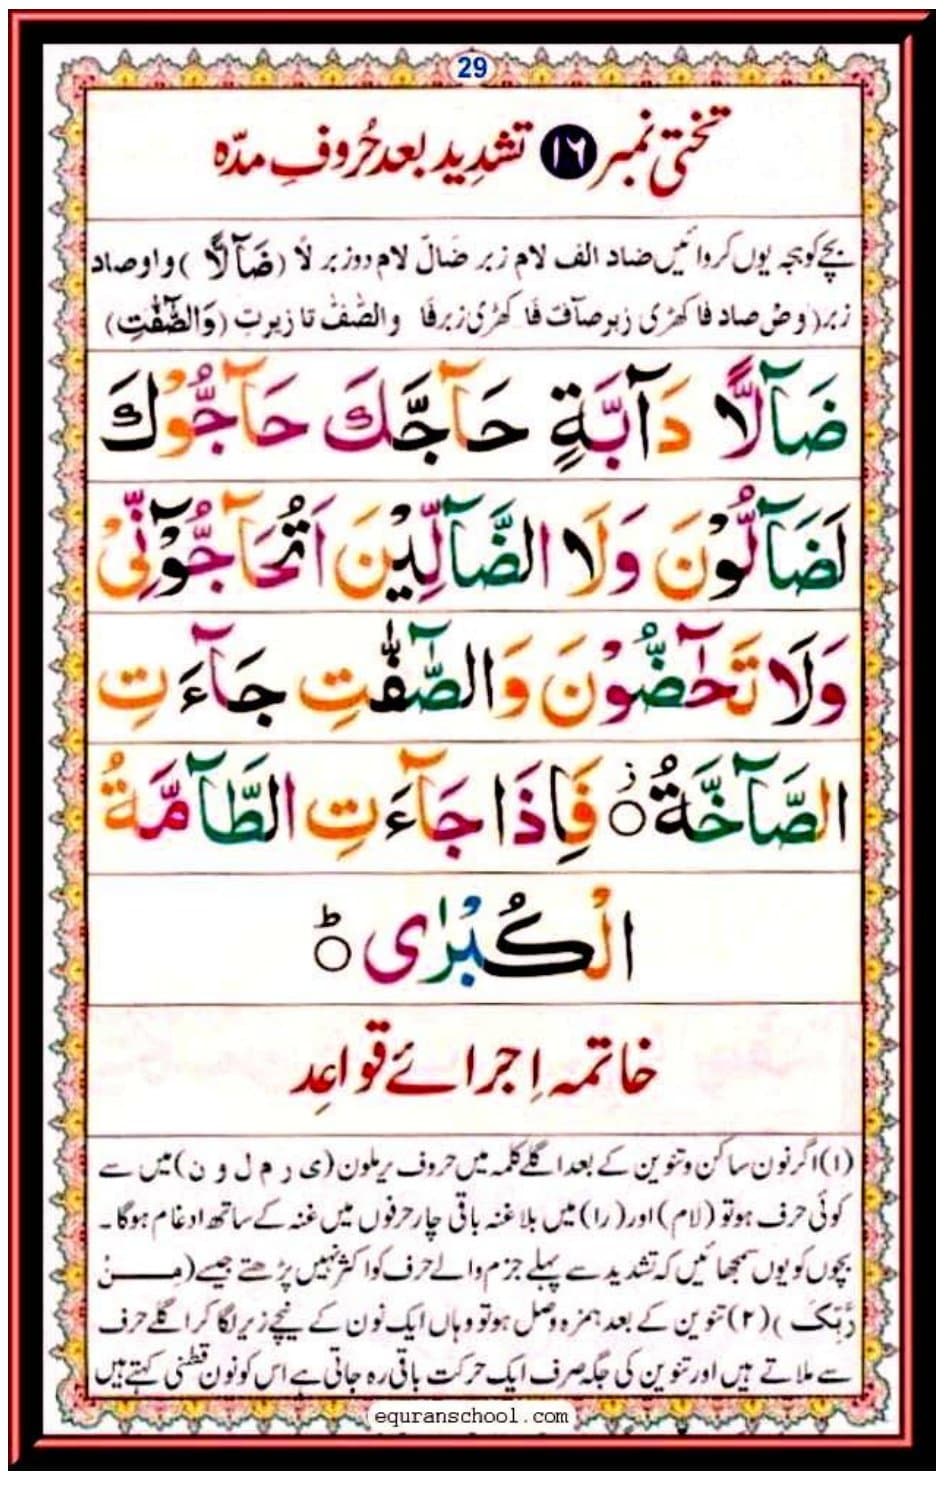 29
تختی نمبر ۱۶ تشدید بعد حُروفِ مدّہ
بچے کو ہجے یوں کروائیں ضاد الف لام زبر ضَالَ لام دوزبر لاً (ضَآلًّا) واو صاد
زبر (وصْ صاد فا کھڑی زبر صآفْ فا کھڑی زبر فٰا والصّٰفّٰ تا زیر تِ (وَالصّٰٓفّٰتِ)
ضَآلًّا دَآبَّةٍ حَآجَّكَ حَآجُّوْكَ
لَضَآلُّوْنَ وَلَا الضَّآلِّيْنَ اَتُحَآجُّوْٓنِّيْ
وَلَا تَحٰٓضُّوْنَ وَالصّٰٓفّٰتِ جَآءَتِ
الصَّآخَّةُ ۟ فَاِذَا جَآءَتِ الطَّآمَّةُ
الْكُبْرٰى ۟ؕ
خاتمہ اِجرائے قواعِد
(۱) اگر نون ساکن و تنوین کے بعد اگلے کلمہ میں حروف یرملون (ی ر م ل و ن) میں سے
کوئی حرف ہو تو (لام) اور (را) میں بلا غنہ باقی چار حرفوں میں غنہ کے ساتھ ادغام ہوگا۔
بچوں کو یوں سمجھائیں کہ تشدید سے پہلے جزم والے حرف کو اکثر نہیں پڑھتے جیسے (مِنْ
رَّبِّكَ) (۲) تنوین کے بعد ہمزہ وصل ہو تو وہاں ایک نون کے نیچے زیر لگا کر اگلے حرف
سے ملاتے ہیں اور تنوین کی جگہ صرف ایک حرکت باقی رہ جاتی ہے اس کو نون قطنی کہتے ہیں
equranschool.com